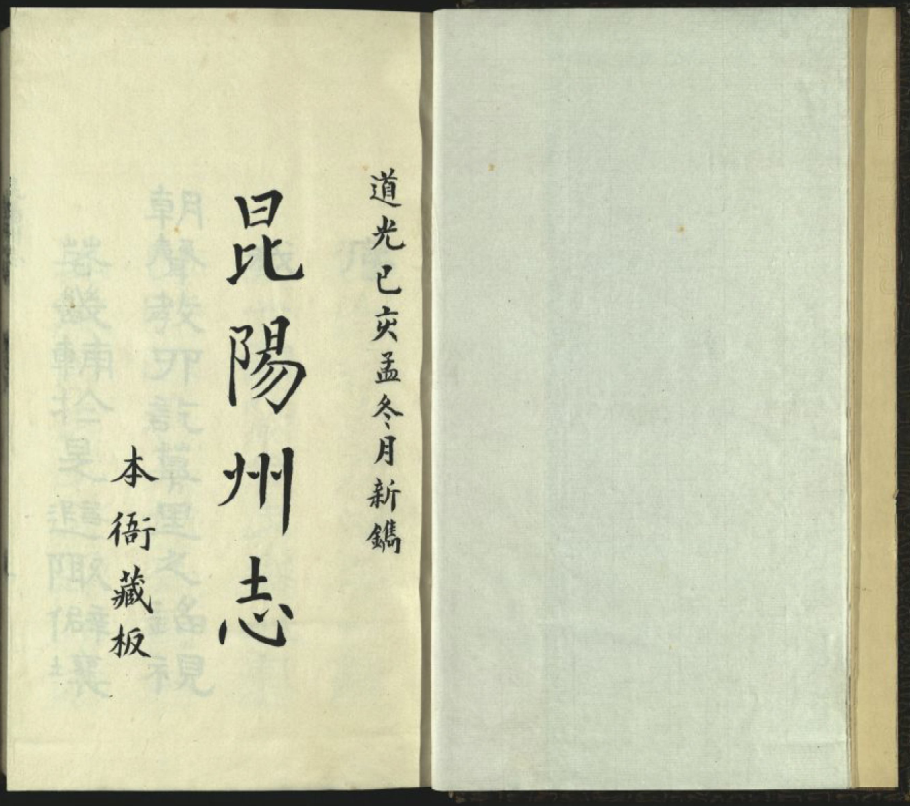 道光己亥孟冬月新鐫
昆陽州志
本衙藏板